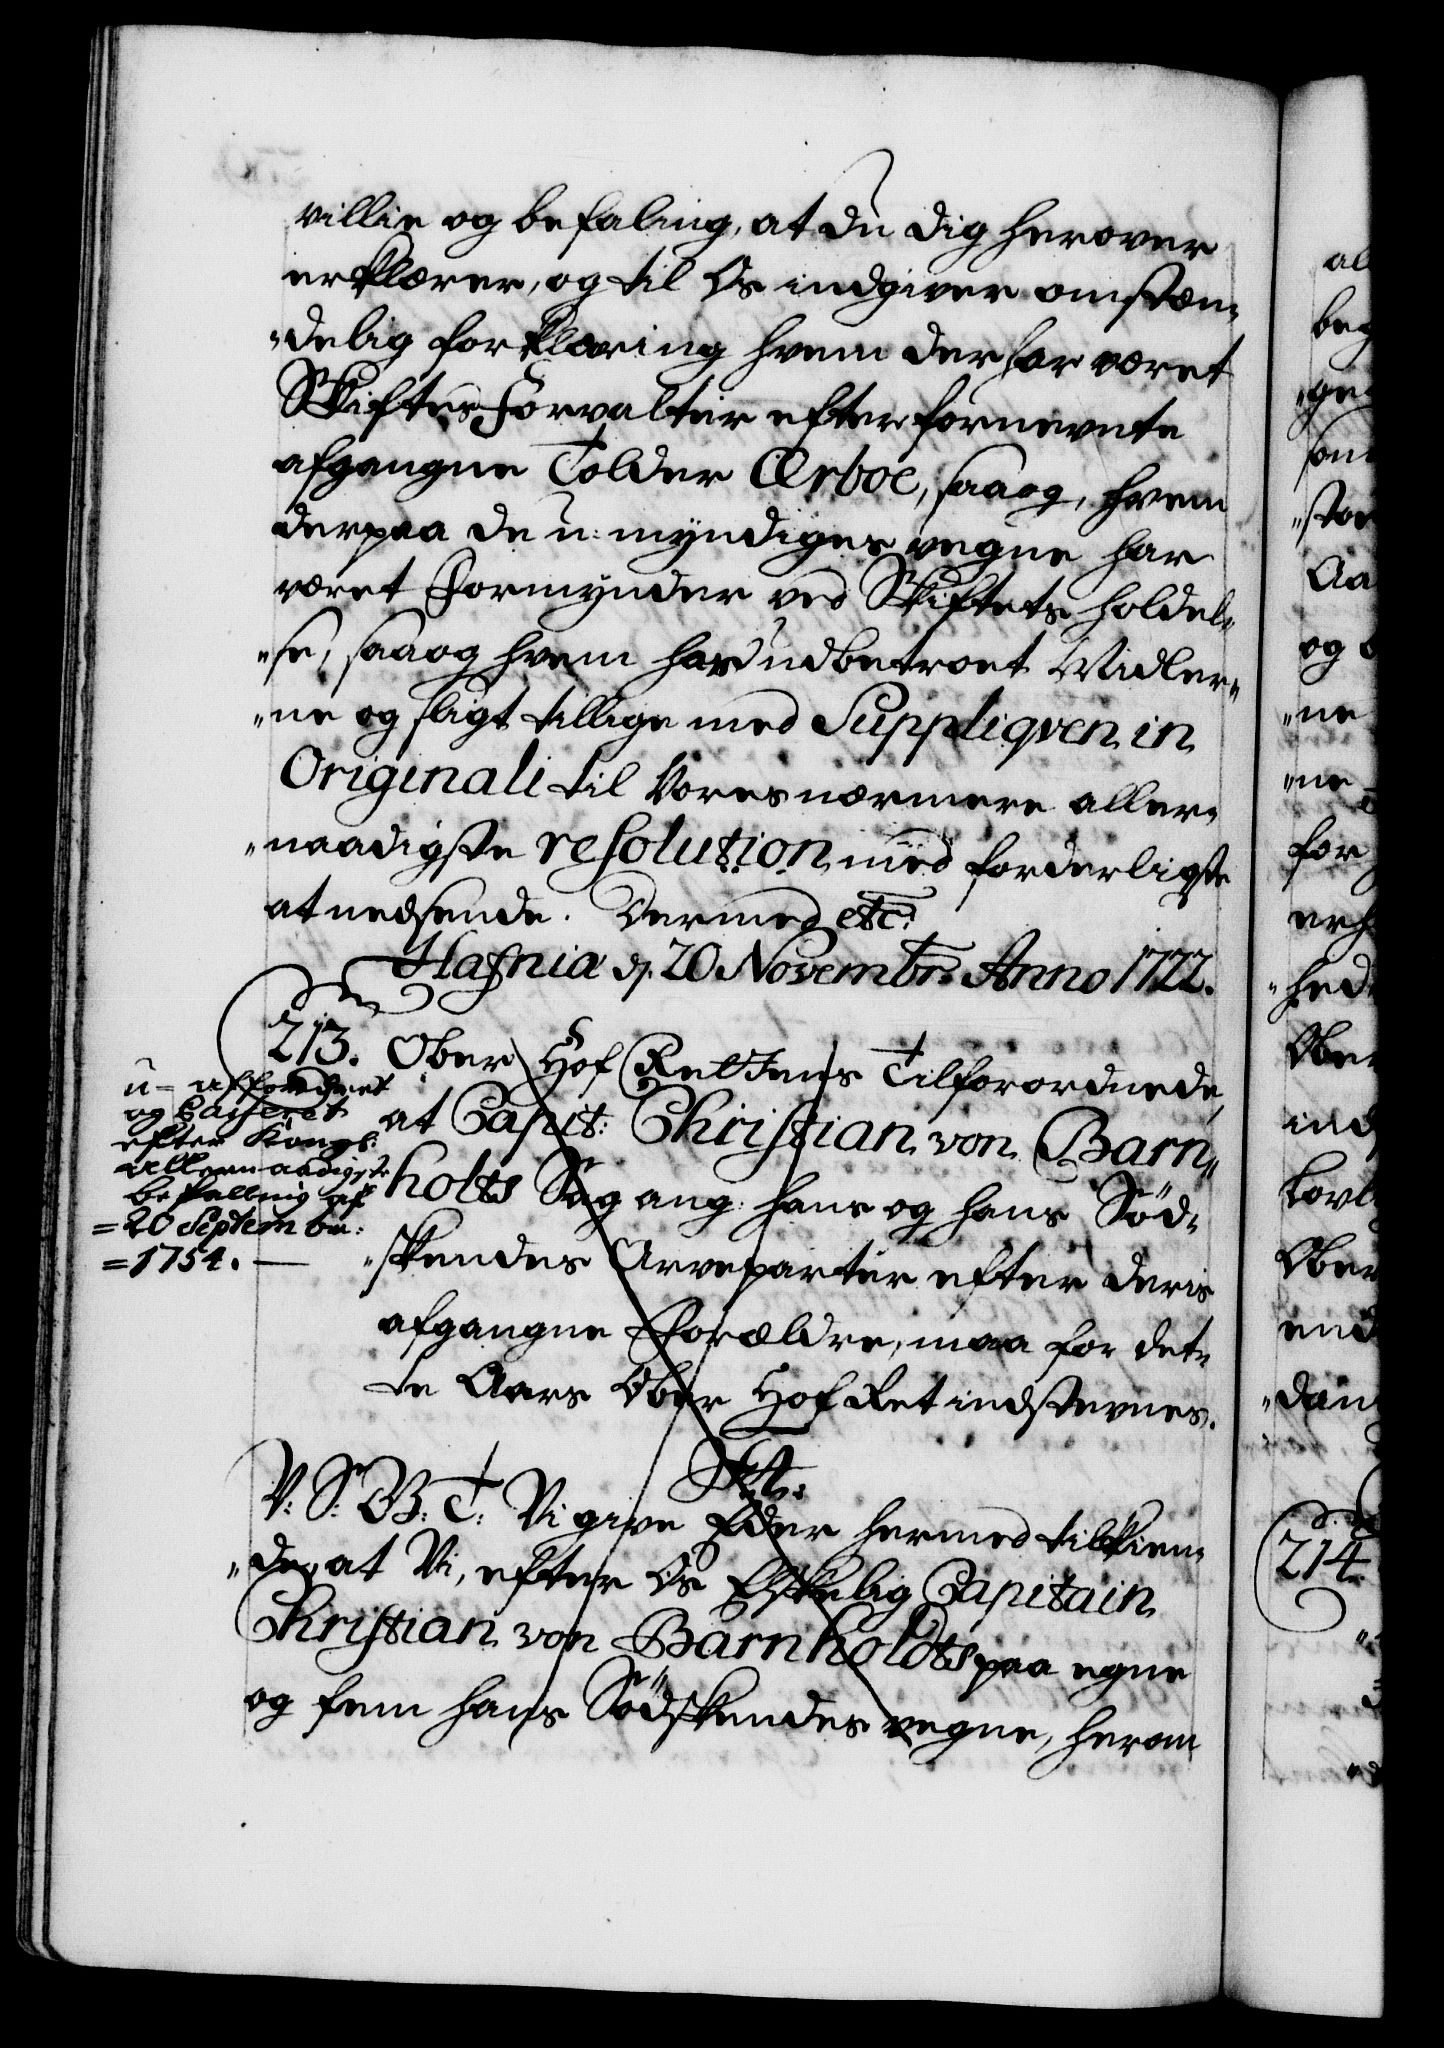 villie og befaling, at du dig herover
erklærer, og til Os indgiver omstæn-
"delig forklaring hvem der har været
Skiftes Forvalter efter fornevnte
afgangne Tolder Ærboe, saa og, hvem
derpaa de u-myndiges vegne har
været Formynder ved Skiftets holdel-
"se, saa og hvem har udbetroet Midler-
"ne og sligt tillige med Suppliqven in
Originali til Vores nærmere aller-
"naadigste resolution med forderligste
at nedsende. Dermed etc:
Hafniæ d. 20 Novembr: Anno 1722.
213. Ober Hof Rettens Tilforordnede,
at Capit: Christian von Barn-
holts Sag ang: hans og hans Sød-
"skendes Arveparter efter deris
afgangne Forældre, maa for det-
te Aars Ober Hof Ret indstevnes.
u-affordret
og Casseret
efter Kongl:
allernaadigste
befalling af
=20 Septembr:
=1754. —
V: S: B: T: Vi give Eder hermed tilkien-
"de, at Vi, efter Os Elskelig Capitain
Christian von Barnholdts paa egne
og fem hans Sødskendes vegne, herom
214